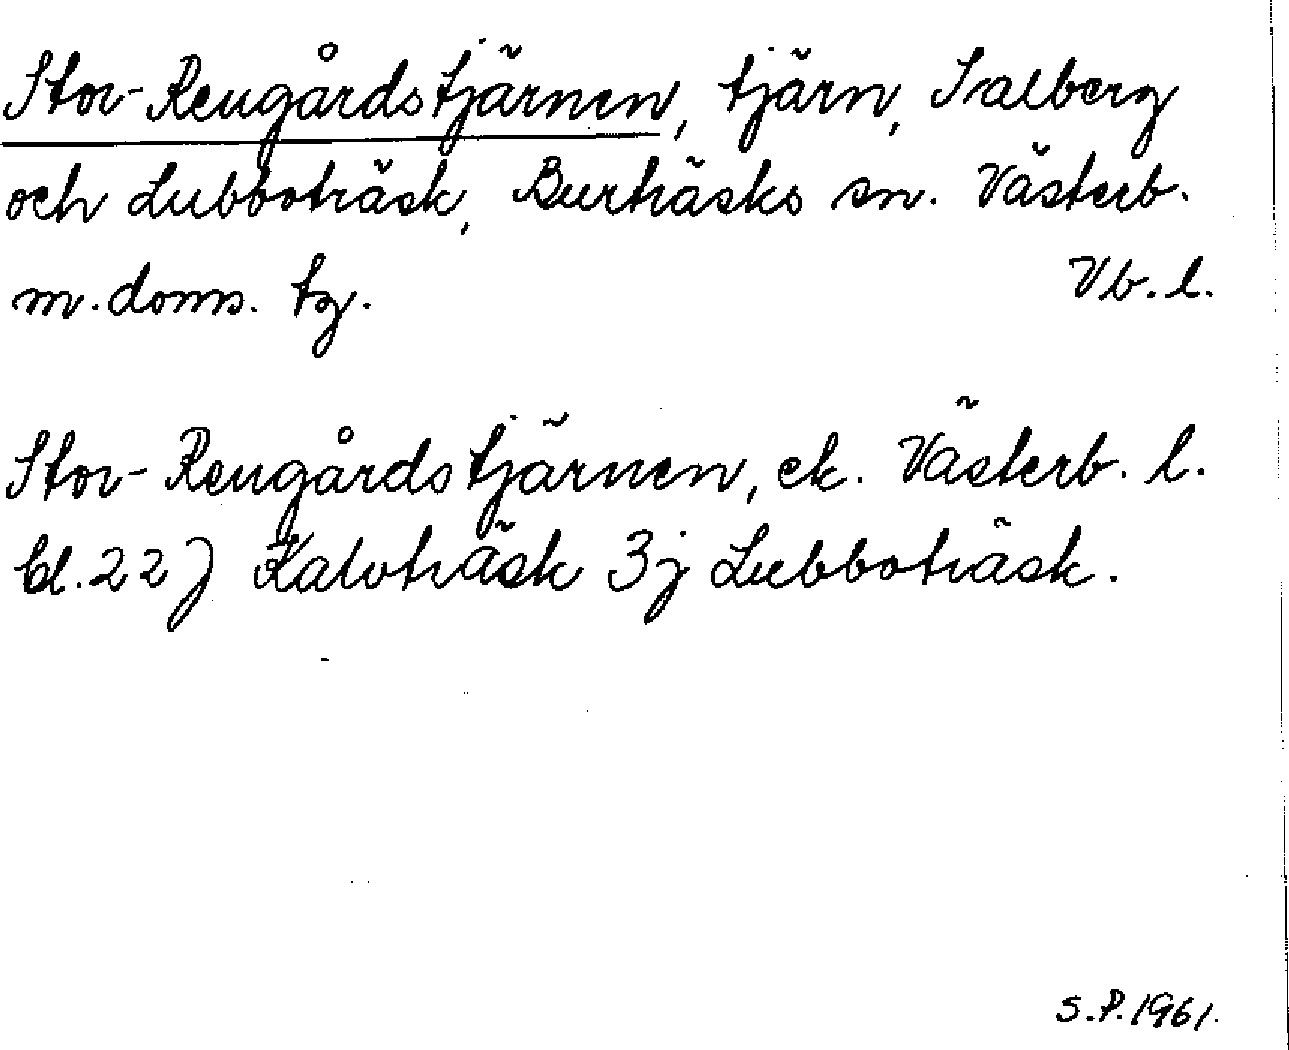 Stor-Rengårdstjärnen, tjärn, Salberg
och Lubboträsk, Burträsks sn. Västerb.
m. doms. tg. Vb. l.
Stor-Rengårdstjärnen, ek. Västerb. l.
bl. 22) Kalvträsk 3j Lubboträsk.
S.P. 1961.